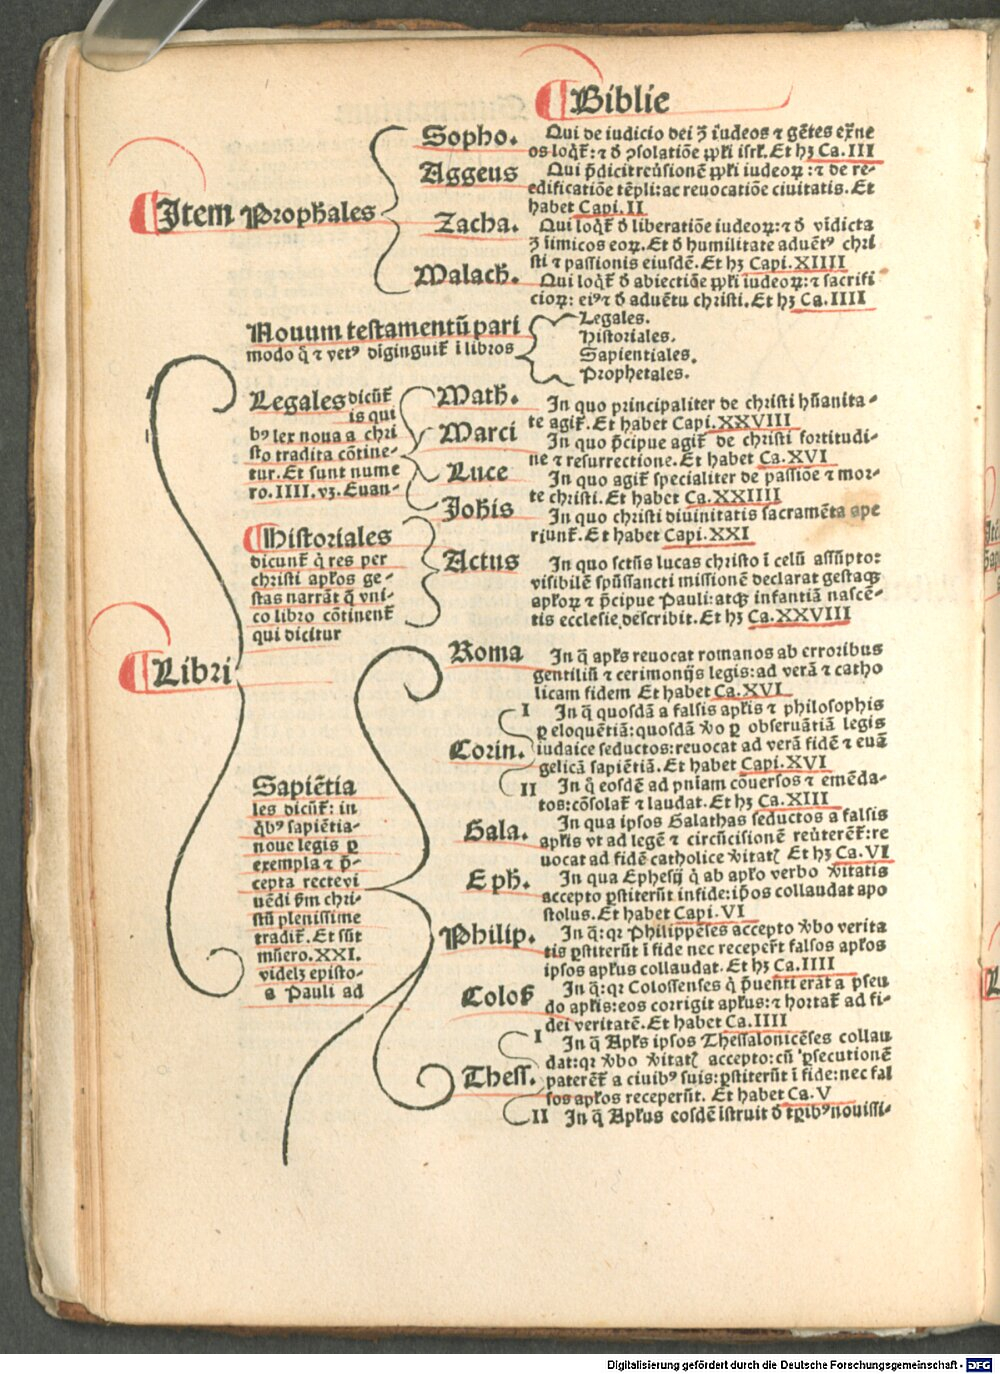 Biblie
Item Prophales
Sopho.
Qui de iudicio dei ꝫ iudeos ⁊ gētes ex̄ne
os loqͥt̄: ⁊ đ ꝯsolatiōe ꝑpl̄i isrl̄. Et hꝫ Ca. III
Aggeus
Qui p̄dicit reūsionē ꝑpl̄i iudeoꝝ: ⁊ de re-
edificatiōe tēpli: ac reuocatiōe ciuitatis. Et
habet Capi. II
Zacha.
Qui loqͥt̄ đ liberatiōe iudeoꝝ: ⁊ đ vīdicta
ꝫ īimicos eoꝝ. Et đ humilitate aduētꝰ chri
sti ⁊ passionis eiusdē. Et hꝫ Capi. XIIII
Malach.
Qui loqͥt̄ đ abiectiōe ꝑpl̄i iudeoꝝ: ⁊ sacrifi
cioꝝ: eiꝰ ⁊ đ aduētu christi. Et hꝫ Ca. IIII
Nouum testamentū pari
modo qͥ ⁊ vetꝰ distinguit̄ ī libros
Legales.
Historiales.
Sapientiales.
Prophetales.
Libri
Legales dicūt̄
is qui
bꝰ lex noua a chri
sto tradita cōtine-
tur. Et sunt nume
ro. IIII. vꝫ. Euan-
Math.
In quo principaliter de christi hūanita-
te agit̄. Et habet Capi. XXVIII
Marci
In quo p̄cipue agit̄ de christi fortitudi-
ne ⁊ resurrectione. Et habet Ca. XVI
Luce
In quo agit̄ specialiter de passiōe ⁊ mor-
te christi. Et habet Ca. XXIIII
Joh̄is
In quo christi diuinitatis sacramēta ape
riunt̄. Et habet Capi. XXI
Historiales
dicunt̄ qͥ res per
christi apl̄os ge-
stas narrāt q̄ vni-
co libro cōtinent̄
qui dicitur
Actus
In quo sctūs lucas christo ī celū assūpto:
visibilē spūssancti missionē declarat gestaqꝫ
apl̄oꝝ ⁊ p̄cipue Pauli: atqꝫ infantiā nascē-
tis ecclesie describit. Et hꝫ Ca. XXVIII
Sapiētia
les dicūt̄: in
qͥbꝰ sapiētia-
noue legis ꝑ
exempla ⁊ p̄-
cepta recte vi
uēdi ẜm chri-
stū plenissime
tradit̄. Et sūt
nūero. XXI.
videlꝫ episto-
e Pauli ad
Roma
In q̄ apl̄s reuocat romanos ab erroribus
gentiliū ⁊ cerimonijs legis: ad verā ⁊ catho
licam fidem Et habet Ca. XVI
Corin.
I In q̄ quosdā a falsis apl̄is ⁊ philosophis
ꝑ eloquētiā: quosdā v̄o ꝑ obseruātiā legis
iudaice seductos: reuocat ad verā fidē ⁊ euā
gelicā sapiētiā. Et habet Capi. XVI
II In q̄ eosdē ad pniam cōuersos ⁊ emēda-
tos: cōsolat̄ ⁊ laudat. Et hꝫ Ca. XIII
Gala.
In qua ipsos Galathas seductos a falsis
apl̄is vt ad legē ⁊ circūcisionē reūterēt̄: re
uocat ad fidē catholice v̄itatꝭ Et hꝫ Ca. VI
Eph.
In qua Ephesij qͥ ab apl̄o verbo v̄itatis
accepto ꝑstiterūt in fide: ip̄os collaudat apo
stolus. Et habet Capi. VI
Philip.
In q̄: qꝛ Philippēses accepto v̄bo verita
tis ꝑstiterūt ī fide nec receper̄t falsos apl̄os
ipsos apl̄us collaudat. Et hꝫ Ca. IIII
Colos̄
In q̄: qꝛ Colossenses qͥ p̄uenti erāt a pseu
do apl̄is: eos corrigit apl̄us: ⁊ hortat̄ ad fi-
dei veritatē. Et habet Ca. IIII
Thess.
I In q̄ Apl̄s ipsos Thessalonicēses collau
dat: qꝛ v̄bo v̄itatꝭ accepto: cū ꝑsecutionē
paterēt̄ a ciuibꝰ suis: ꝑstiterūt ī fide: nec fal
sos apl̄os receperūt. Et habet Ca. V
II In q̄ Apl̄us eosdē īstruit đ tꝑibꝰ nouissi-
Digitalisierung gefördert durch die Deutsche Forschungsgemeinschaft - DFG